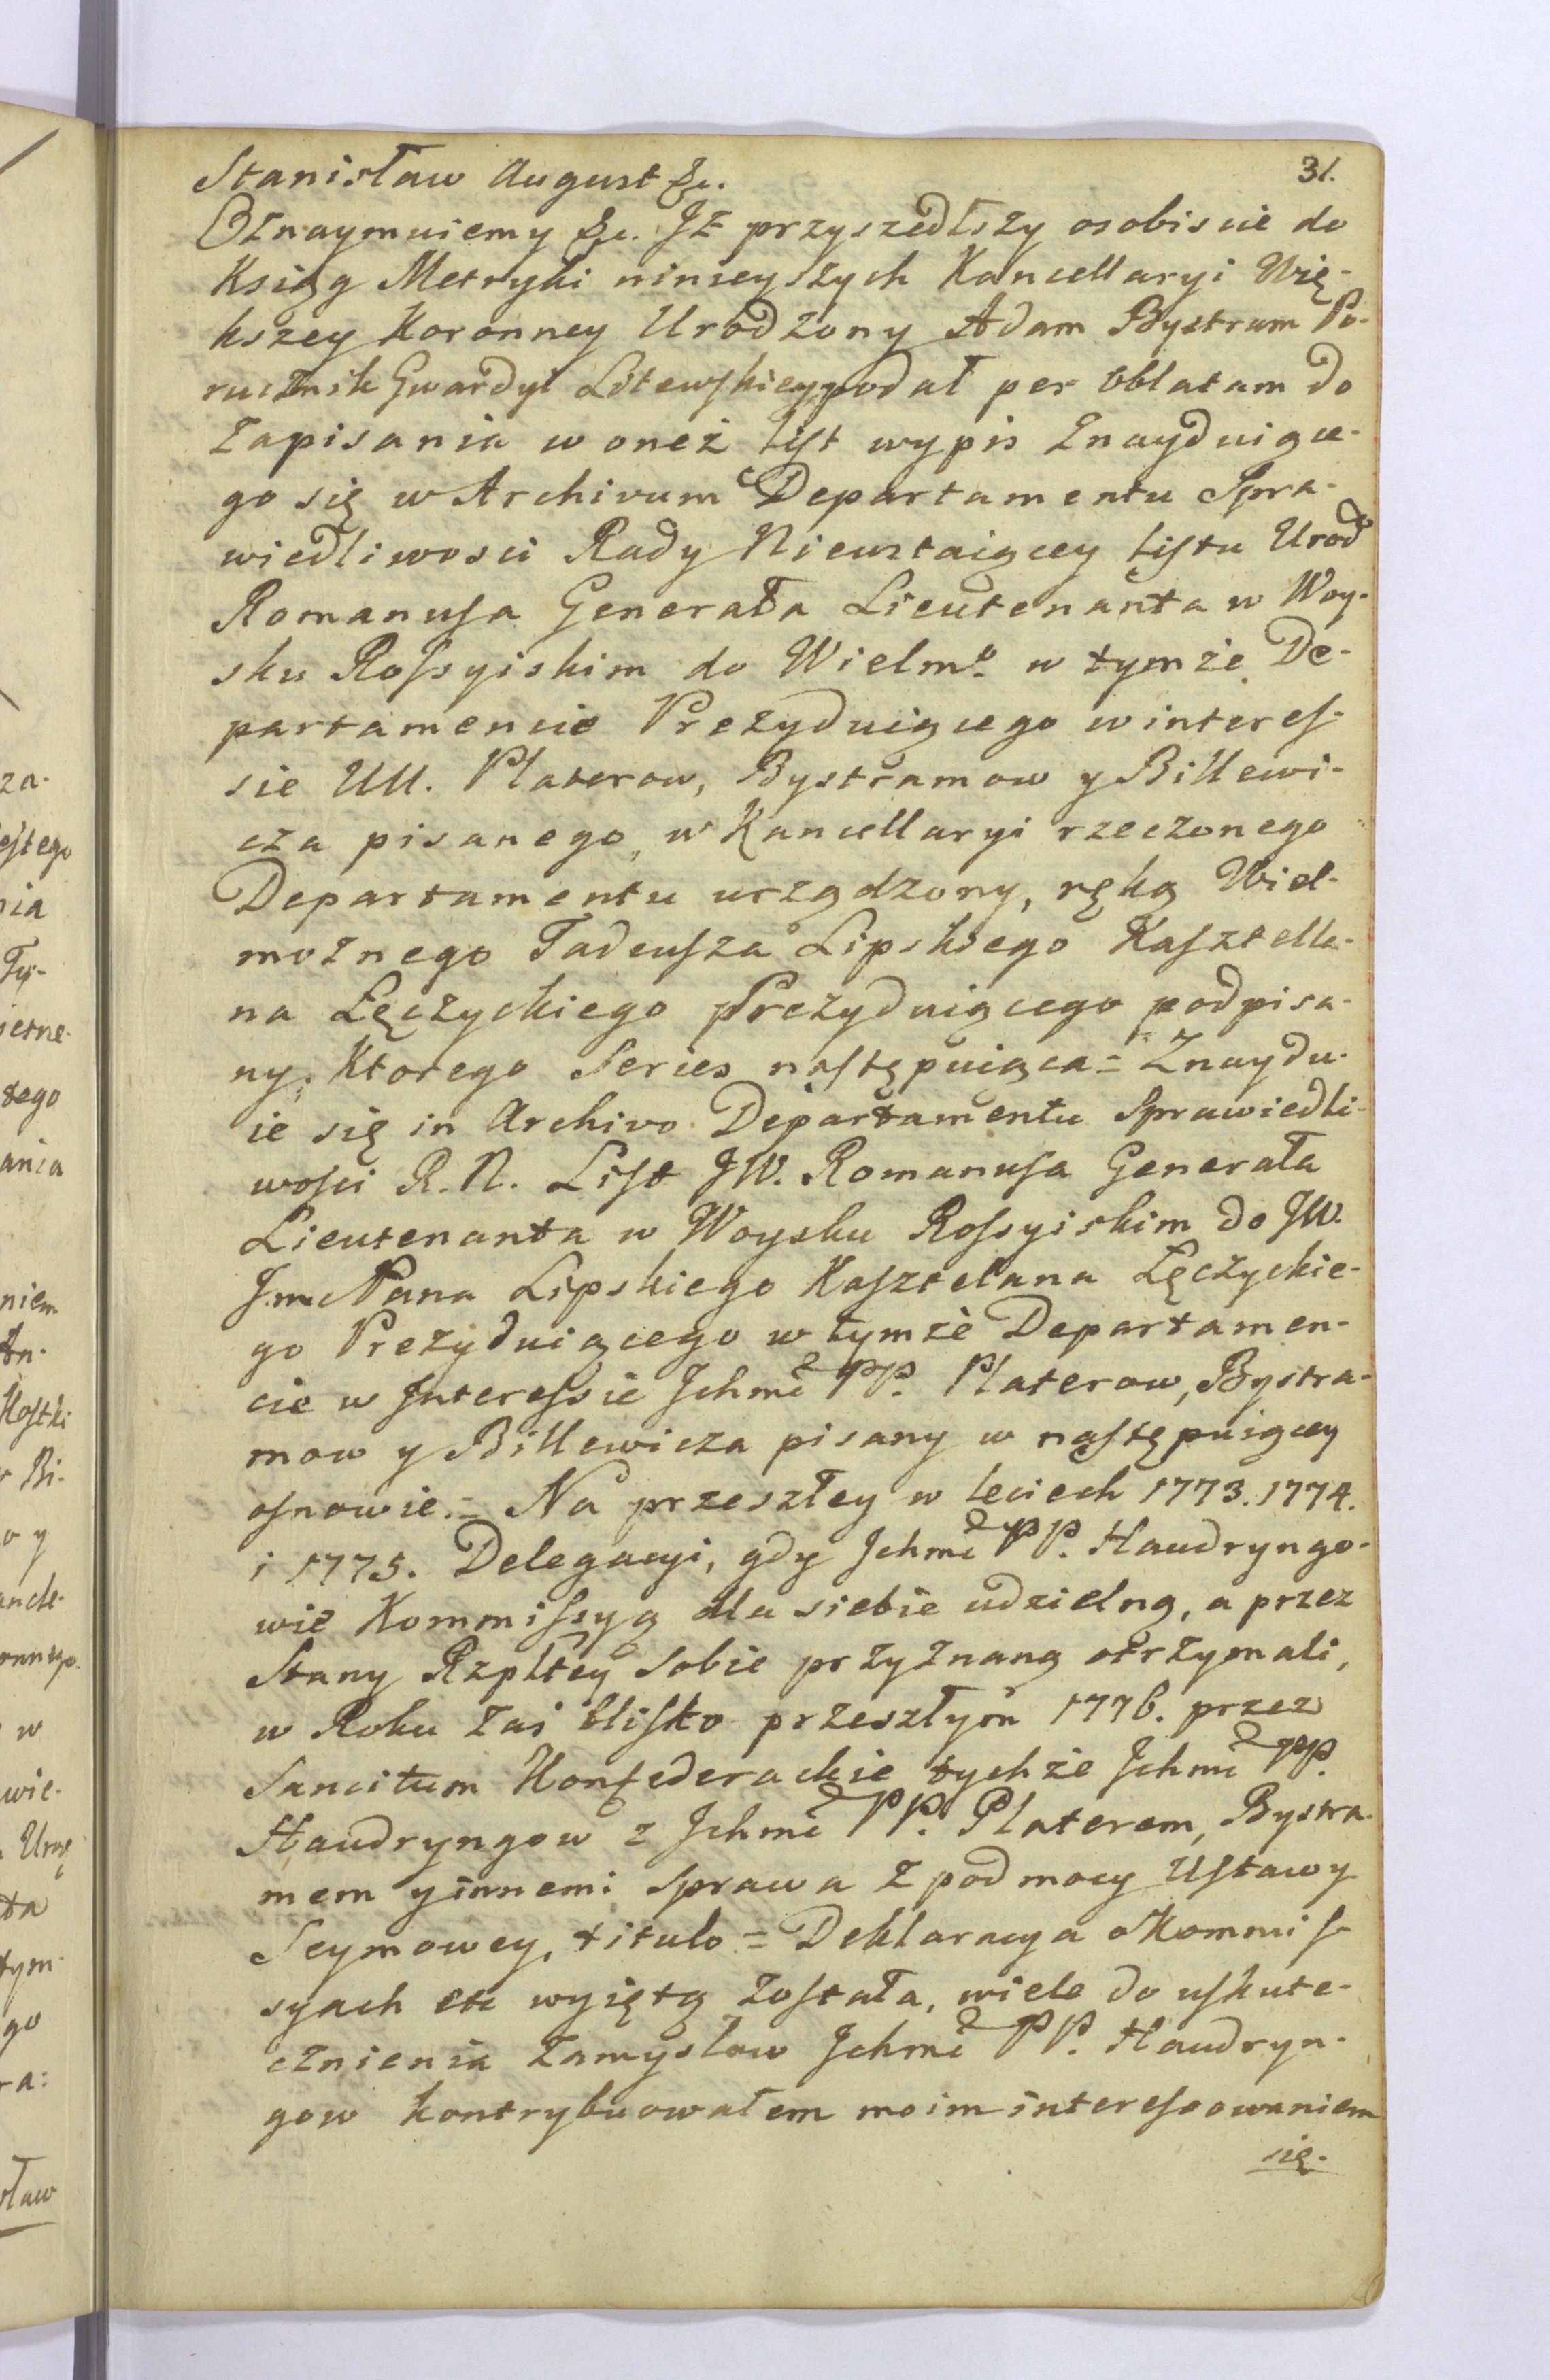 31.
Stanisław August &c.
Oznaymuiemy &c. Iż przyszedłszy osobiscie do
Ksiąg Metryki ninieyszych Kancellaryi Wię-
kszey Koronney Urodzony Adam Bystram Po-
rucznik Gwardyi Litewskiey podał per Oblatam do
zapisania w oneż list wypis znayduiące-
go się w Archivum Departamentu Spra-
wiedliwosci Rady Nieustaiącey listu Urod
Romanusa Generała Lieutenanta w Woy-
sku Rossyiskim do Wielmo. w tymże De-
partamencie Prezyduiącego w interes-
sie UU. Platerow, Bystramow y Billewi-
cza pisanego, w Kancellaryi rzeczonego
Departamentu urządzony, ręką Wiel-
możnego Tadeusza Lipskiego Kasztella-
na Łęczyckiego Prezyduiącego podpisa-
ny, Ktorego Series następuiąca = Znaydu-
ie się in Archivo Departamentu Sprawiedli-
wosci R. N. List JW. Romanusa Generała
Lieutenanta w Woysku Rossyiskim do JW.
Jmc Pana Lipskiego Kasztelana Łęczyckie-
go Prezyduiącego w tymże Departamen-
cie w Interessie Ichmć PP. Platerow, Bystra-
mow y Billewicza pisany w następuiącey
osnowie. = Na przeszłey w leciech 1773. 1774.
i 1775. Delegacyi, gdy Ichmć PP. Haudryngo-
wie Kommissyą dla siebie udzielną, a przez
Stany Rzpltey sobie przyznaną otrzymali,
w Roku zaś blisko przeszłym 1776. przez
Sancitum Konfederackie tychże Ichmć PP.
Haudryngow z Ichmć PP. Platerem, Bystra-
mem y innemi sprawa z pod mocy Ustawy
Seymowey, titulo = Deklaracya o Kommis-
syach etc wyiętą została, wiele do uskute-
cznienia zamysłow Ichmć PP. Haudryn-
gow kontrybuowałem moim interessowaniem
się.
za-
estego
nia
Ty-
ietne-
tego
ania
niem
Kostki
Bi-
o y
w
wie-
ta
tym-
go
ra:
sław